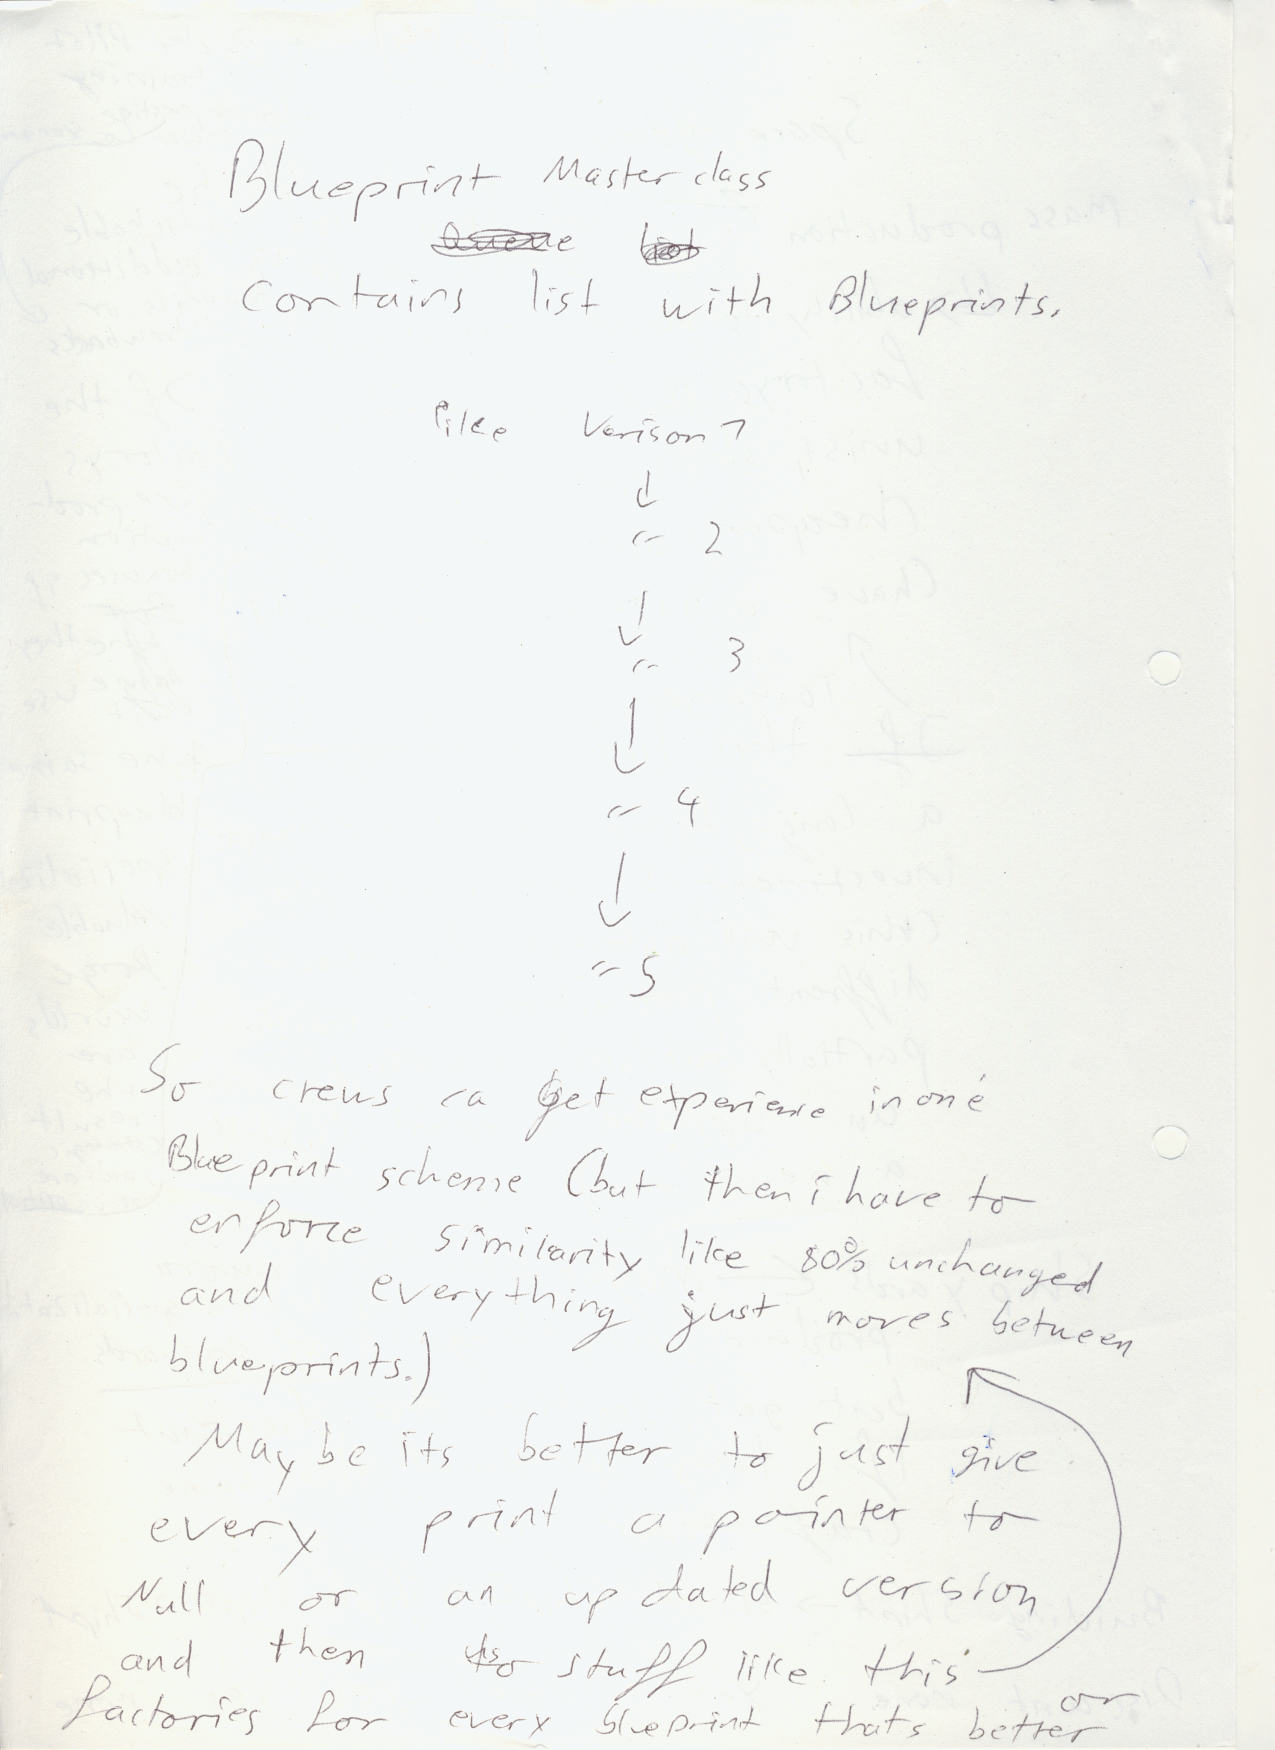 Blueprint Master class
Contains list with Blueprints.
like Verison 1
" 2
" 3
" 4
" 5
So crews ca get experience in one
Blueprint scheme (but then i have to
enforce similarity like 80% unchanged
and everything just moves between
blueprints.)
May be its better to just give
every print a pointer to
Null or an updated version
and then to stuff like this
or
factories for every blueprint thats better